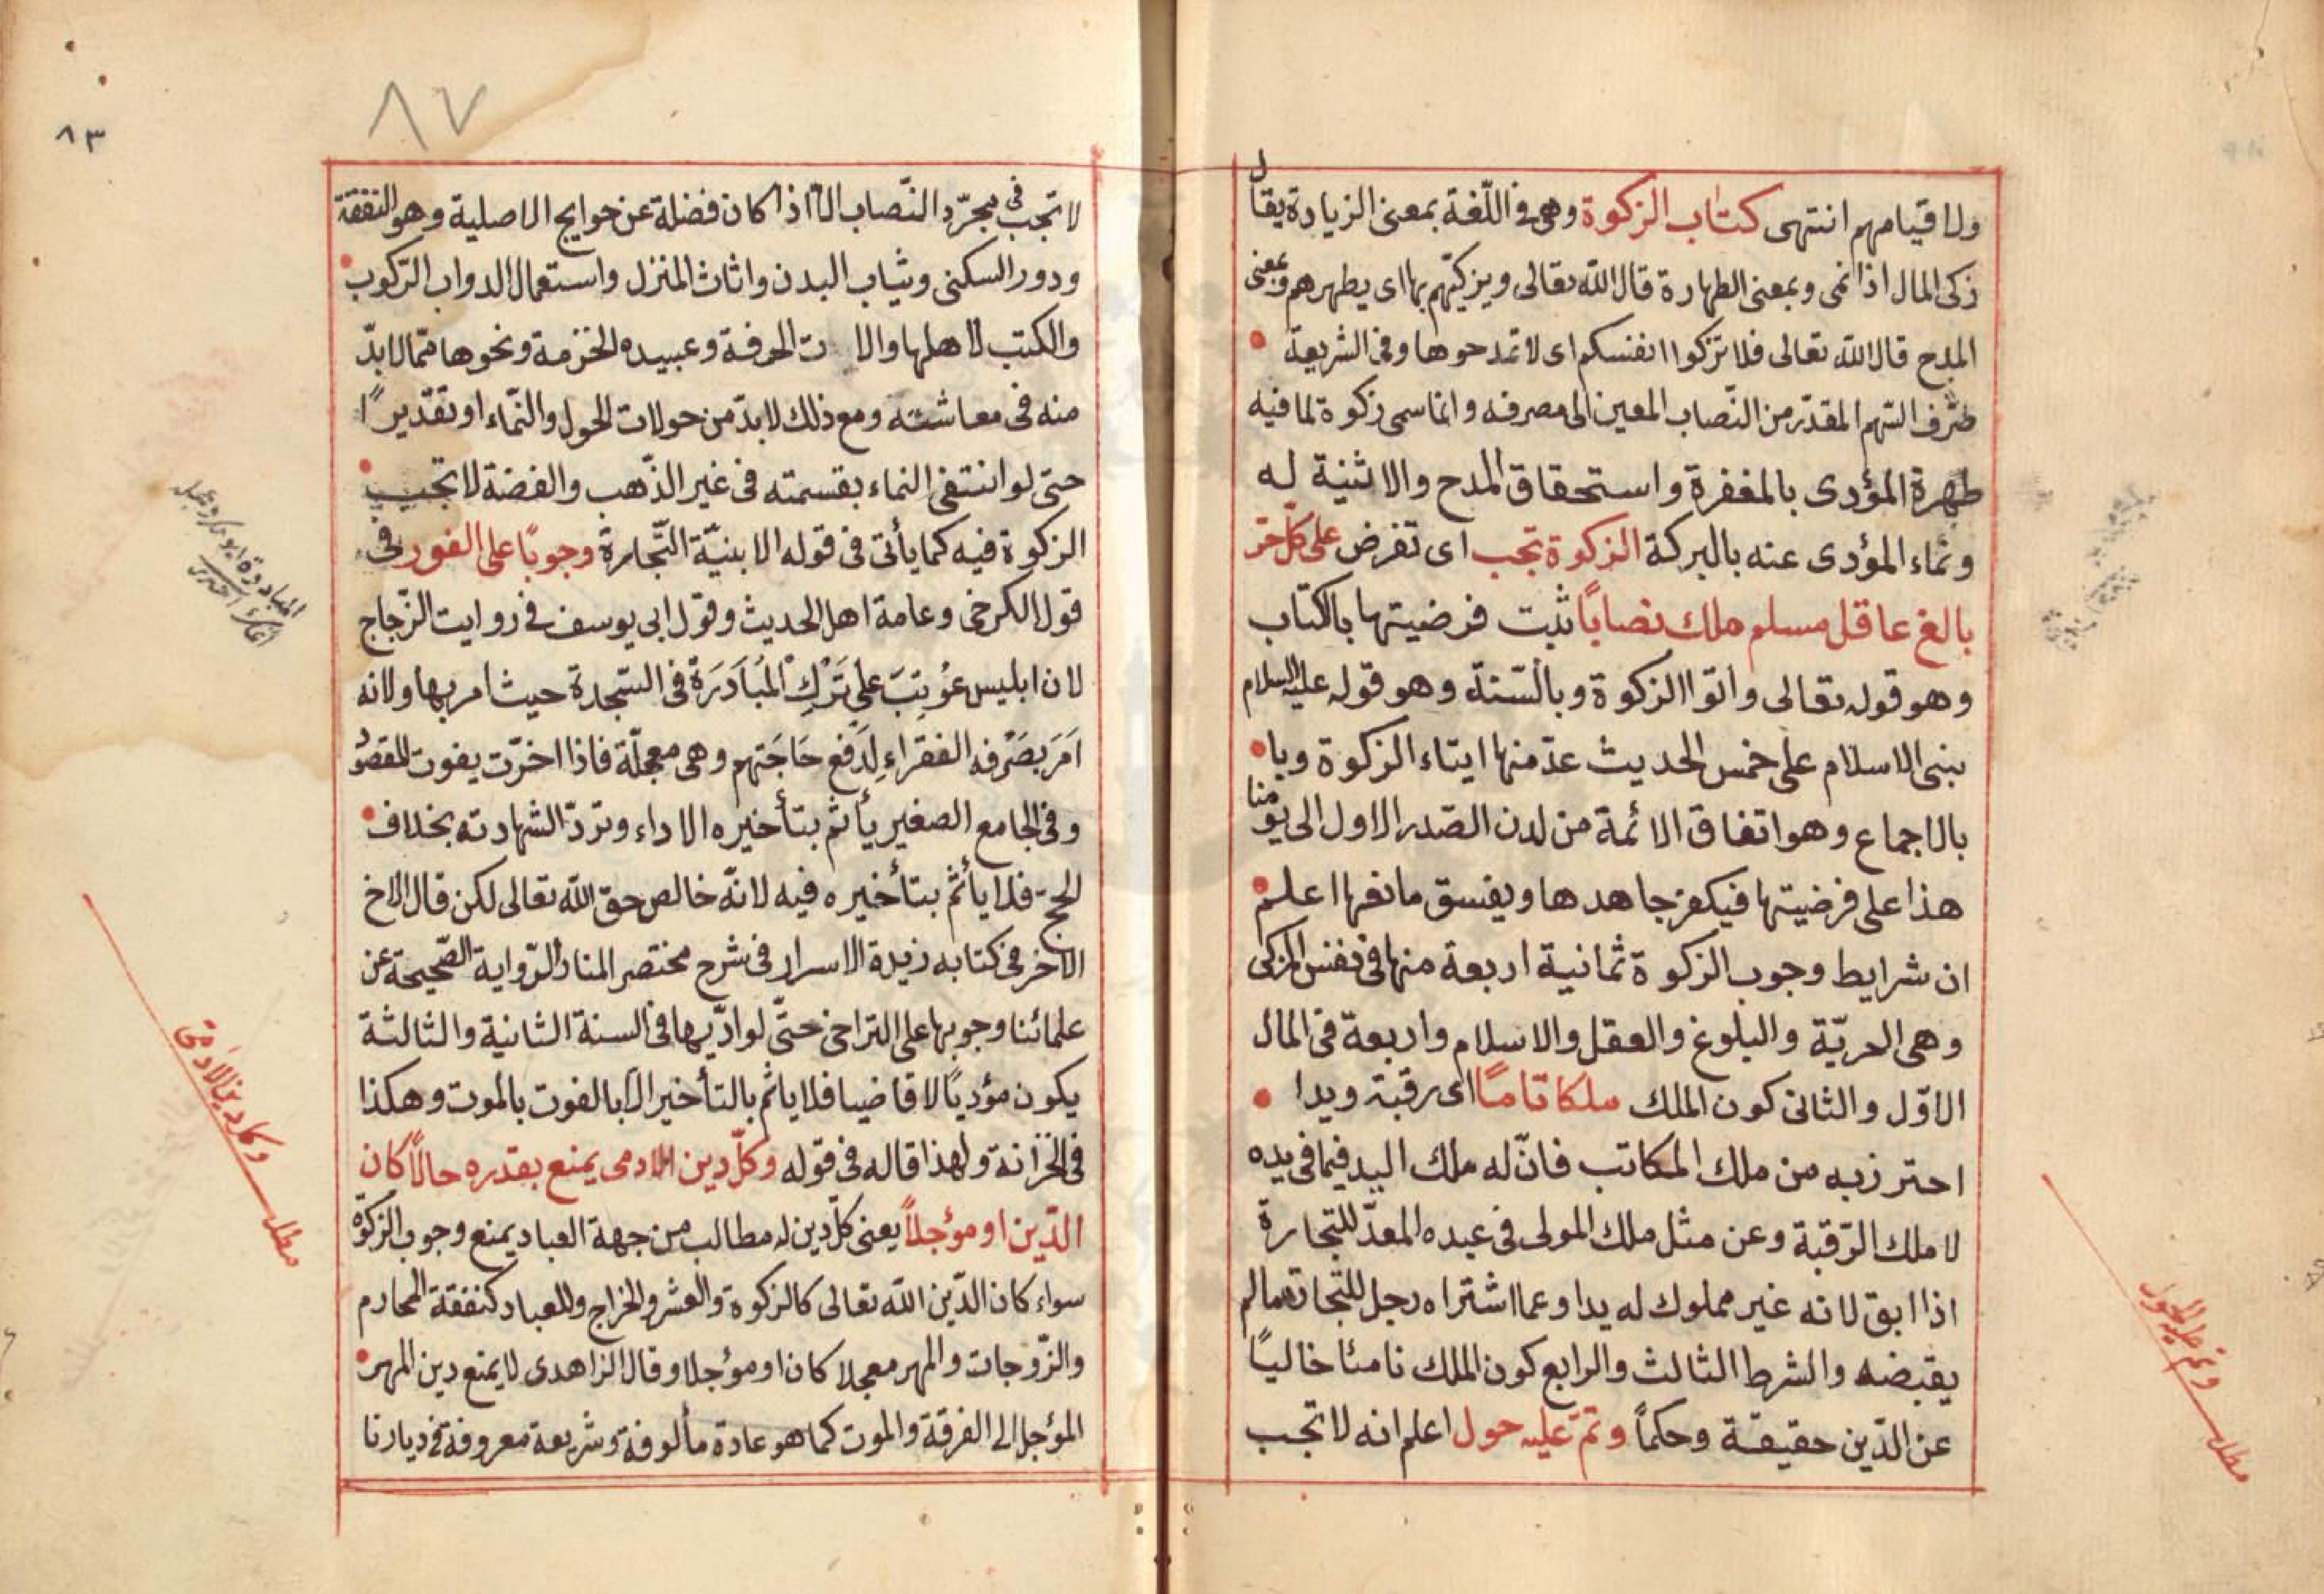 ولا قيامهم انتهى كتاب الزكوة وهى فى اللّغة بمعنى الزيادة يقال
زكى المال اذا نمى وبمعنى الطهارة قال الله تعالى ويزكيّهم بها اى يطهرهم وبمعنى
المدح قال الله تعالى فلا تزكوا انفسكم اى لا تمدحوها وفى الشريعة
صَرف السّهم المقدّر من النّصاب المعين الى مصرفه وانما سمى زكوة لما فيه
طهرة المؤدى بالمغفرة واستحقاق المدح والاثنية له
ونماء المؤدى عنه بالبركة الزكوة تجب اى تفرض على كلّ حرّ
بالغ عاقل مسلم ملك نصابًا ثبت فرضيتها بالكتاب
وهو قوله تعالى وأتوا الزكوة وبالسّنة وهو قوله عليه السلام
بنى الاسلام على خمس الحديث عدّ منها ايتاء الزكوة وبا
بالاجماع وهو اتفاق الائمة من لدن الصّدر الاول الى يومنا
هذا على فرضيتها فيكفر جاهدها ويفسق مانعها اعلم
ان شرايط وجوب الزكوة ثمانية اربعة منها فى نفس المزكى
وهى الحريّة والبلوغ والعقل والاسلام واربعة فى المال
الاوّل والثانى كون الملك ملكا تامًا اى رقبة ويدا
احترز به من ملك المكاتب فانّ له ملك اليد فيما فى يده
لا ملك الرّقبة وعن مثل ملك المولى فى عبده المعدّ للتجارة
اذا ابق لانه غير مملوك له يدا وعما اشتراه رجل للتجارة مالم
يقبضه والشرط الثالث والرابع كون الملك نامئا خاليًا
عن الدّين حقيقة وحكمًا وتمّ عليه حول اعلم انه لا تجب
وتم عليه الحول
مطلب
٨٧
٨٣
لا تجب فى مجرّد النّصاب الاّ اذا كان فضلة عن حوايج الاصلية وهو النفقة
ودور السكنى وثياب البدن واثاث المنزل واستعمال الدواب الرّكوب
والكتب لاهلها والالات الحرفة وعبيده الخزمة ونحوها ممّا لابدّ
منه فى معاشته ومع ذلك لابدّ من حولات الحول والنّماء او تقديرًا
حتى لو انتفى النماء بقسمته فى غير الذّهب والفضة لا تجب
الزكوة فيه كما يأتى فى قوله الا بنيّة التّجارة وجوبًا على الفور فى
قول الكرخى وعامة اهل الحديث وقول ابى يوسف فى روايت الزّجاج
لان ابليس عُوتِبَ على تَرْكِ المُبَادَرَة فى السّجدة حيث امر بها ولانه
اَمَرَ بصَرْفه الفقراءِ لِدَفع حَاجَتهم وهى معجلّة فاذا اخرّت يفوت المقصُو
وفى الجامع الصغير يأثم بتأخيره الاداء وتردّ الشهادته بخلاف
الحج فلا يأثم بتأخيره فيه لانّه خالص حق الله تعالى لكن قال الاخ
الاخر فى كتابه زبدة الاسرار فى شرح مختصر المنار الرّواية الصّحيحة عن
علمائنا وجوبها على التراخى حتّى لو ادّيها فى السنة الثانية والثالثة
يكون مؤديًا لا قاضيا فلا ياثم بالتأخير الاّ بالفوت بالموت وهكذا
فى الخزانة ولهذا قاله فى قوله وكلّ دين الادمى يمنع بقدره حالاً كان
الدّين او مؤجلاً يعنى كلّ دين له مطالب من جهة العباد يمنع وجوب الزكوة
سواء كان الدّين الله تعالى كالزكوة والعشر والخراج وللعباد كنفقة المحارم
والزّوجات والمهر معجلا كان او مؤجلا وقال الزاهدى لا يمنع دين المهر
المؤجل الى الفرقة والموت كما هو عادة مألوفة وشريعة معروفة فى ديارنا
وكل دين الادمى
مطلب